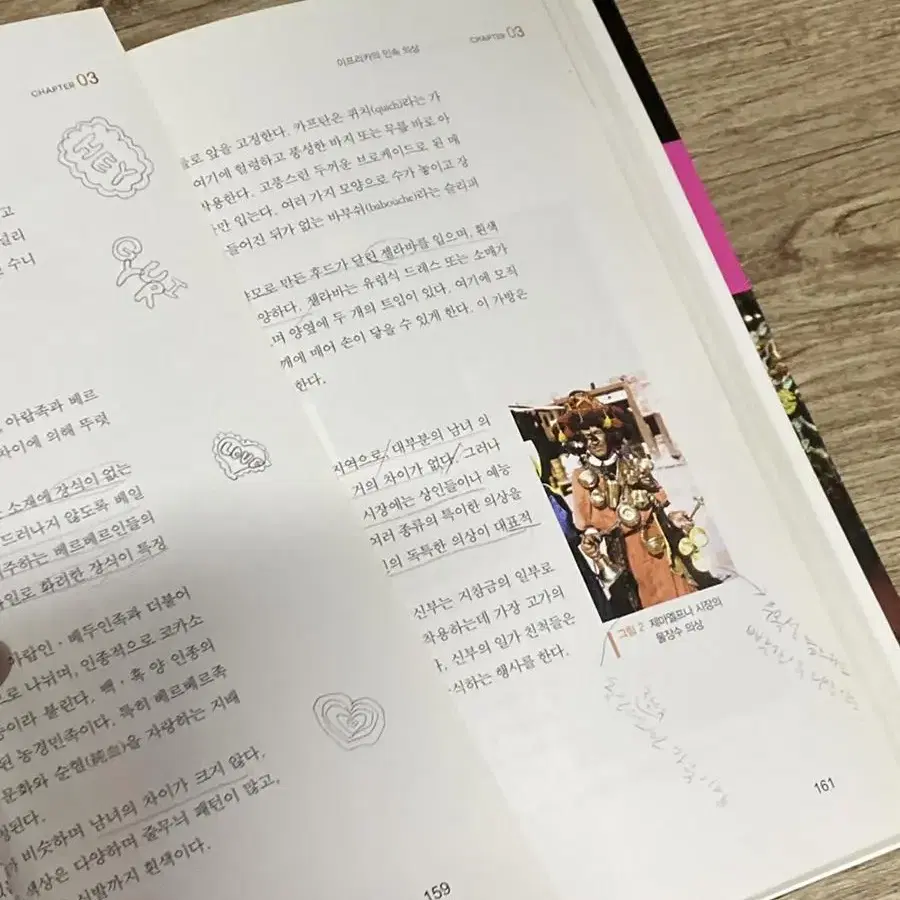 CHAPTER 03
HEY
고
GUYRI
아랍족과 베르
차이에 의해 뚜렷
LOVE
소재에 장식이 없는
드러나지 않도록 베일
주하는 베르베르인들의
화려한 장식이 특징
아랍인·베두인족과 더불어
으로 나뉘며, 인종적으로 코카소
이라 불린다. 백·흑 양 인종의
된 농경민족이다. 특히 베르베르족
문화와 순혈(純血)을 자랑하는 지배
된다.
비슷하며 남녀의 차이가 크지 않다.
색상은 다양하며 줄무늬 패턴이 많고,
신발까지 흰색이다.
159
아프리카의 민속 의상
CHAPTER 03
로 앞을 고정한다. 카프탄은 퀴치(quich)라는 가
여기에 헐렁하고 풍성한 바지 또는 무릎 바로 아
사용한다. 고풍스런 두꺼운 브로케이드로 된 매
만 입는다. 여러 가지 모양으로 수가 놓이고 장
들어진 뒤가 없는 바부쉬(babouche)라는 슬리퍼
모로 만든 후드가 달린 젤라바를 입으며, 흰색
양하다. 젤라바는 유럽식 드레스 또는 소매가
며 양옆에 두 개의 트임이 있다. 여기에 모직
깨에 매어 손이 닿을 수 있게 한다. 이 가방은
한다.
지역으로, 대부분의 남녀 의
거의 차이가 없다. 그러나
시장에는 상인들이나 예능
여러 종류의 특이한 의상을
의 독특한 의상이 대표적
신부는 지참금의 일부로
착용하는데 가장 고가의
, 신부의 일가 친척들은
식하는 행사를 한다.
그림 2 제마엘프나 시장의
물장수 의상
161